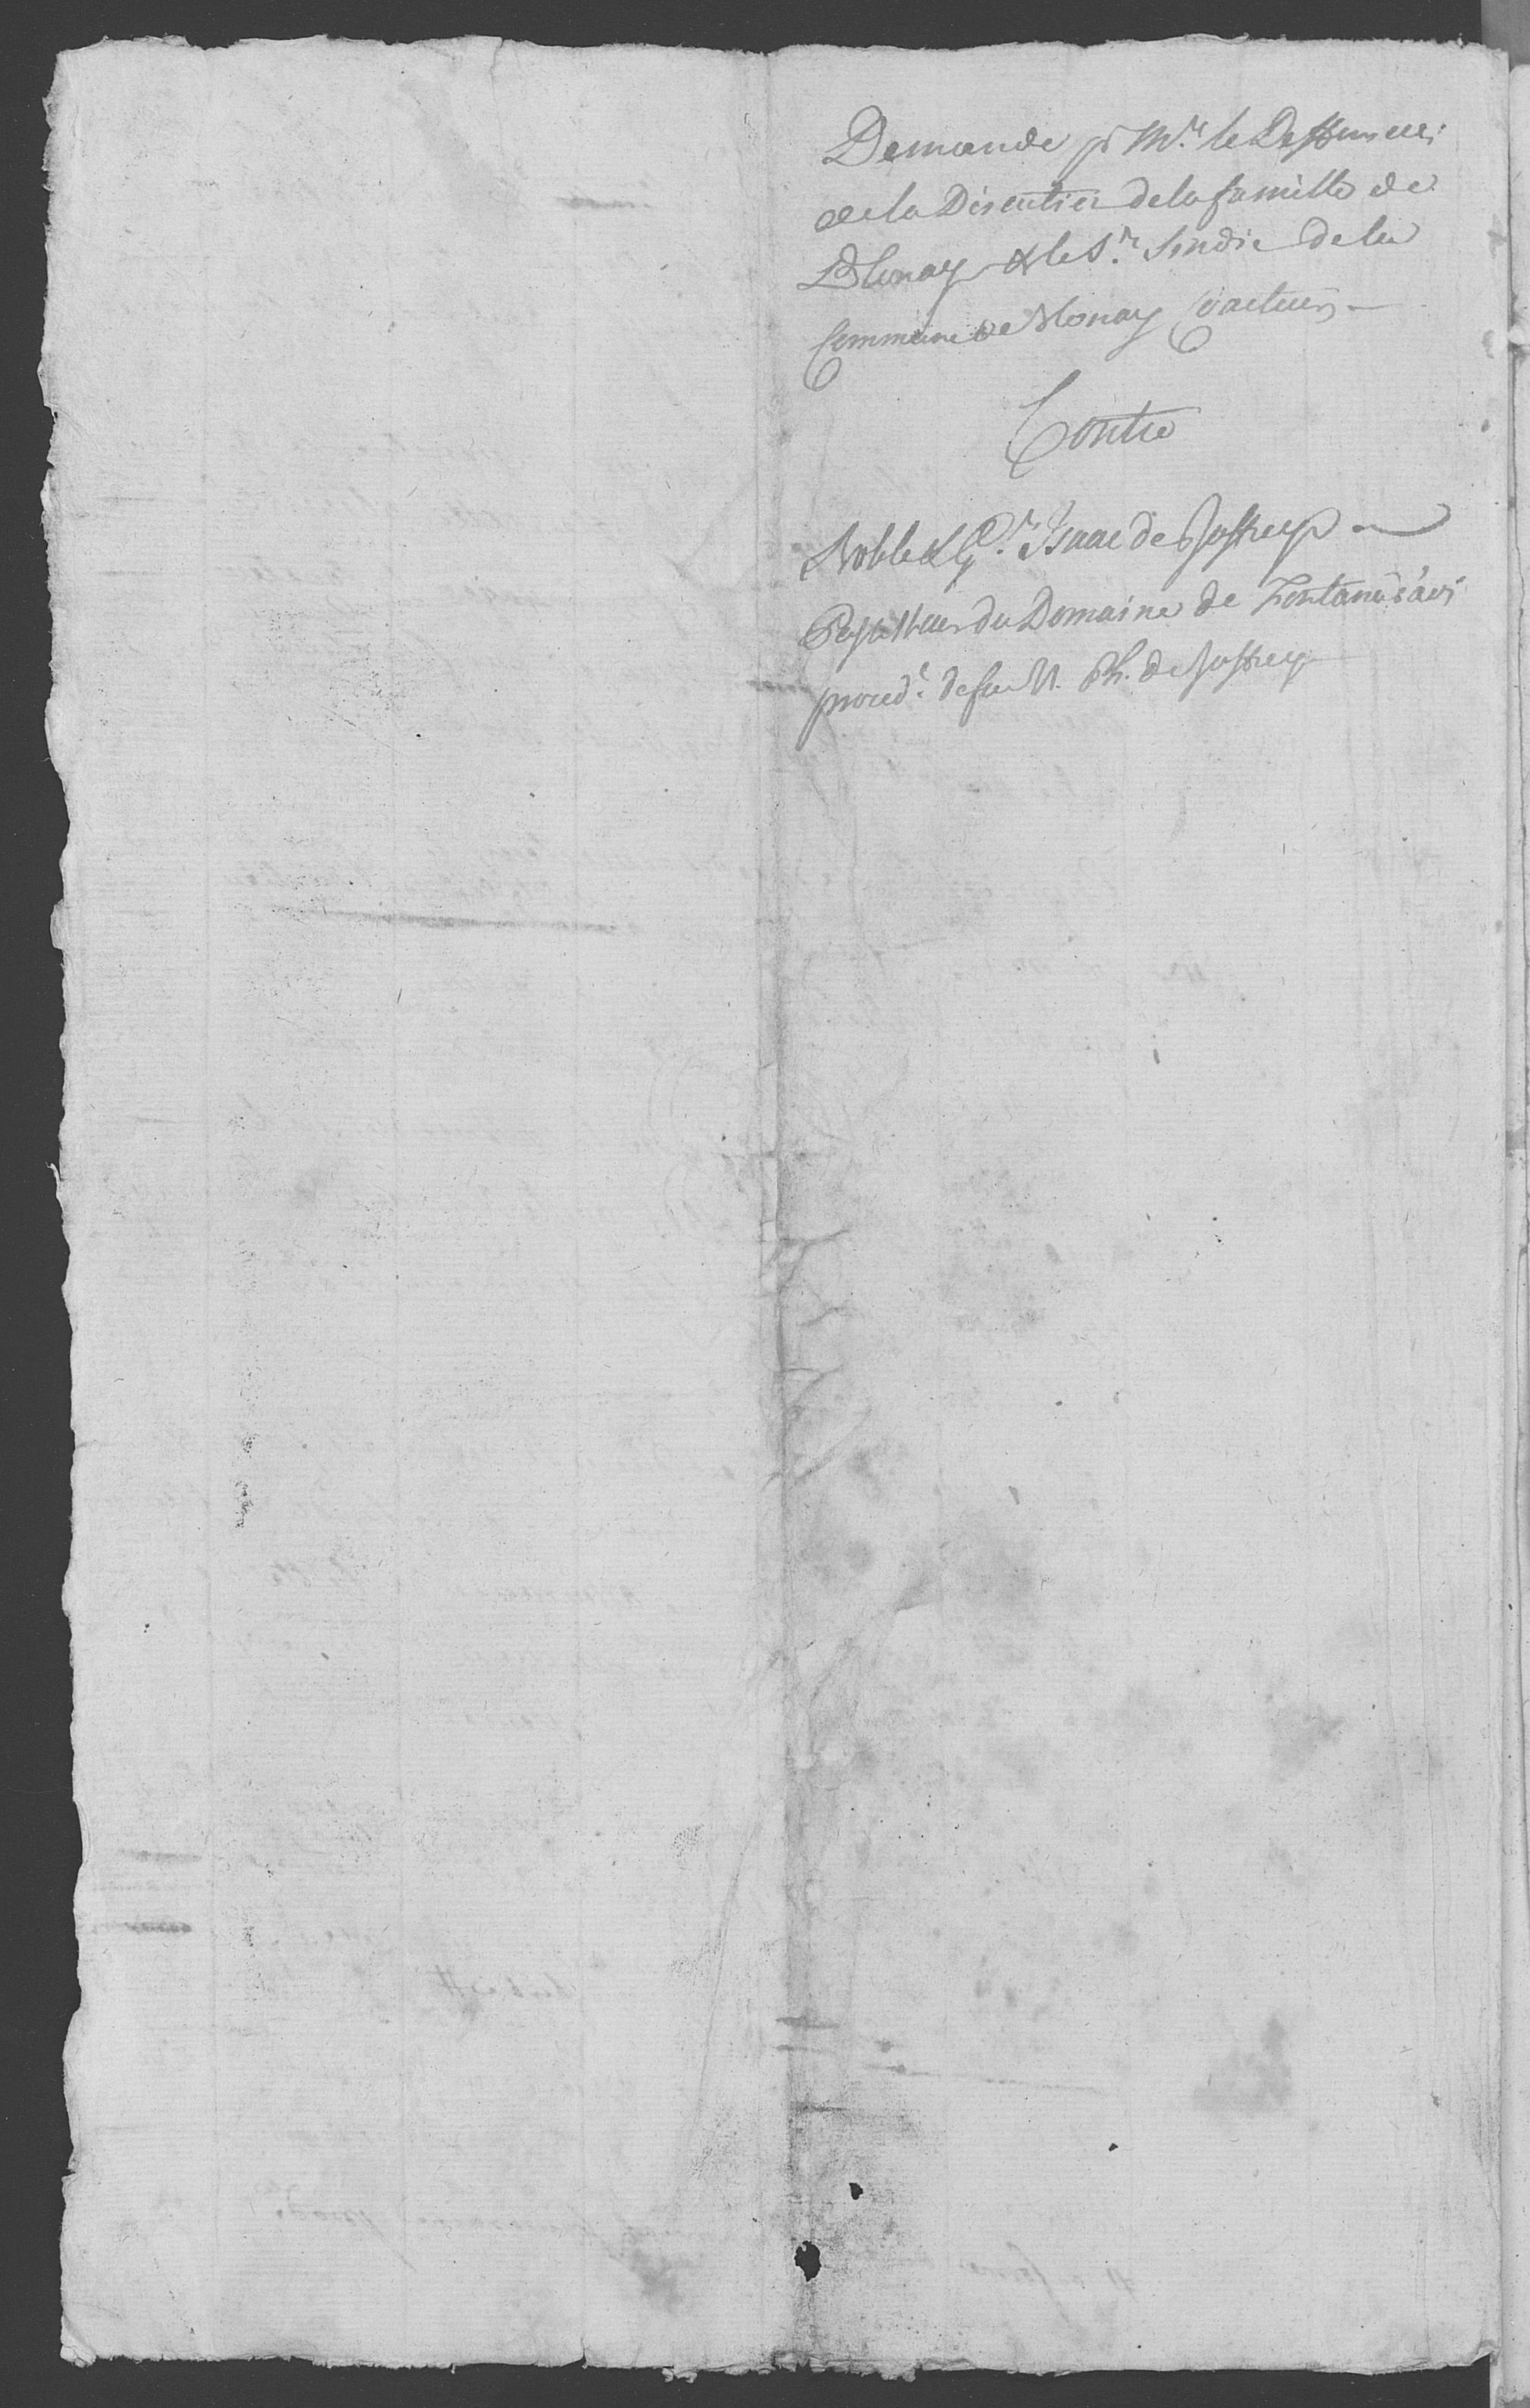 Demande pr Mr. le Deffenseur
de la Discution de la famille de
Blonay & le Sr. Sindic de la
Commune de Blonay Coacteurs
Contre
Noble & Gx. Isaac de Joffrey
Possesseur du Domaine de
proced.t de feu N. Ph. de Joffrey